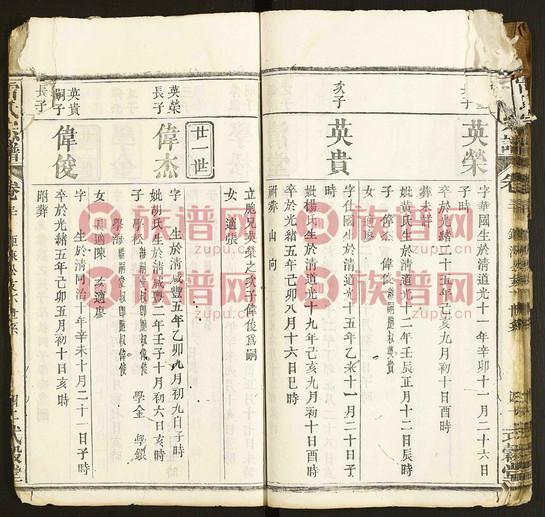 長子
英榮
字華國生於清道光十一年辛卯十一月二十六日
子時
卒於光緒二十五年己亥九月初十日酉時
葬未詳
妣黃氏生於清道光十二年壬辰正月十二日辰時
子 偉傑 偉俊
女 適
次子
英貴
字仕國生於清道光十五年乙未十一月二十日子
時
妣楊氏生於清道光十九年己亥九月初十日亥時
卒於光緒五年己卯八月十六日巳時
祔葬 山向
立胞兄英榮之次子偉俊爲嗣
女 適張
廿一世
英榮
長子
偉杰
字 生於清咸豐五年乙卯九月初九日子時
妣胡氏生於清咸豐二年壬子十月初六日亥時
子 學松 學金 學銀
學海
女 長適陳 次適廖
英貴
嗣子
偉俊
字 生於清同治十年辛未十月二十一日子時
卒於光緒五年己卯五月初十日亥時
附葬
長子
氏族譜
卷
族谱网
zupu.cn